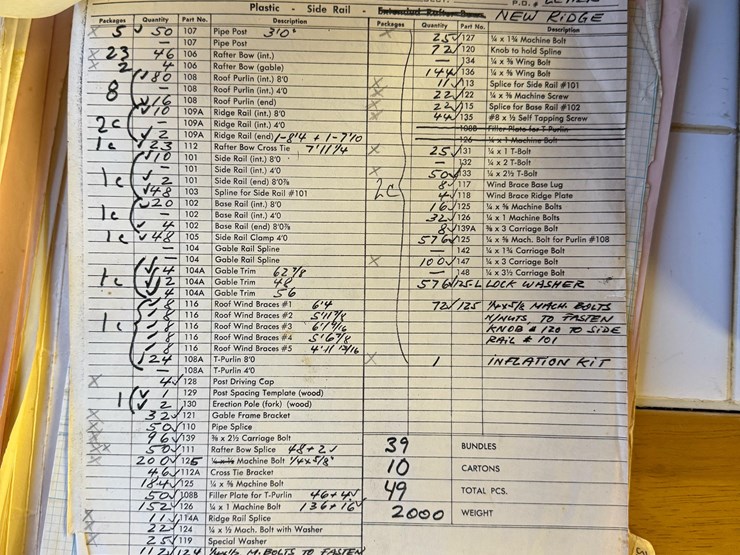 Plastic - Side Rail - Extended Rafter Bows. NEW RIDGE
P.O. #
Packages Quantity Part No. Description
5 50 107 Pipe Post 310"
— 107 Pipe Post
23 46 106 Rafter Bow (int.)
2 4 106 Rafter Bow (gable)
8 80 108 Roof Purlin (int.) 8'0
— 108 Roof Purlin (int.) 4'0
16 108 Roof Purlin (end)
2c 10 109A Ridge Rail (int.) 8'0
— 109A Ridge Rail (int.) 4'0
2 109A Ridge Rail (end) 1-8'4 + 1-7'10
1c 23 112 Rafter Bow Cross Tie 7'11 1/4
1c 10 101 Side Rail (int.) 8'0
— 101 Side Rail (int.) 4'0
2 101 Side Rail (end) 8'0⅞
48 103 Spline for Side Rail #101
1c 20 102 Base Rail (int.) 8'0
— 102 Base Rail (int.) 4'0
4 102 Base Rail (end) 8'0⅞
1c 48 105 Side Rail Clamp 4'0
— 104 Gable Rail Spline
— 104 Gable Rail Spline
1c 4 104A Gable Trim 62 7/8
2 104A Gable Trim 48
4 104A Gable Trim 56
1c 8 116 Roof Wind Braces #1 6'4
8 116 Roof Wind Braces #2 5'11 7/8
8 116 Roof Wind Braces #3 6'1 9/16
8 116 Roof Wind Braces #4 5'6 7/8
8 116 Roof Wind Braces #5 4'11 13/16
24 108A T-Purlin 8'0
— 108A T-Purlin 4'0
4 128 Post Driving Cap
1 1 129 Post Spacing Template (wood)
2 130 Erection Pole (fork) (wood)
32 121 Gable Frame Bracket
50 110 Pipe Splice
96 139 ⅜ x 2½ Carriage Bolt
50 111 Rafter Bow Splice 48+2
200 125 Machine Bolt 1/4x5/8"
46 112A Cross Tie Bracket
184 125 ¼ x ⅝ Machine Bolt
50 108B Filler Plate for T-Purlin 46+4
152 126 ¼ x 1 Machine Bolt 136+16
11 114A Ridge Rail Splice
22 124 ¼ x ½ Mach. Bolt with Washer
25 119 Special Washer
112 124 M. BOLTS TO FASTEN
Packages Quantity Part No. Description
25 127 ¼ x 1¾ Machine Bolt
72 120 Knob to hold Spline
— 134 ¼ x ¾ Wing Bolt
144 136 ¼ x ⅝ Wing Bolt
11 113 Splice for Side Rail #101
22 122 ¼ x ⅜ Machine Screw
22 115 Splice for Base Rail #102
44 135 #8 x ½ Self Tapping Screw
108B Filler Plate for T-Purlin
126 ¼ x 1 Machine Bolt
25 131 ¼ x 1 T-Bolt
— 132 ¼ x 2 T-Bolt
50 133 ¼ x 2½ T-Bolt
2c 8 117 Wind Brace Base Lug
4 118 Wind Brace Ridge Plate
16 125 ¼ x ⅝ Machine Bolts
32 126 ¼ x 1 Machine Bolts
8 139A ⅜ x 3 Carriage Bolt
576 125 ¼ x ⅝ Mach. Bolt for Purlin #108
— 142 ¼ x 1¾ Carriage Bolt
100 147 ¼ x 3 Carriage Bolt
— 148 ¼ x 3½ Carriage Bolt
576 125-L LOCK WASHER
72 125 1/4x5/8 MACH. BOLTS
W/NUTS TO FASTEN
KNOB # 120 TO SIDE
RAIL # 101
1 INFLATION KIT
39 BUNDLES
10 CARTONS
49 TOTAL PCS.
2000 WEIGHT